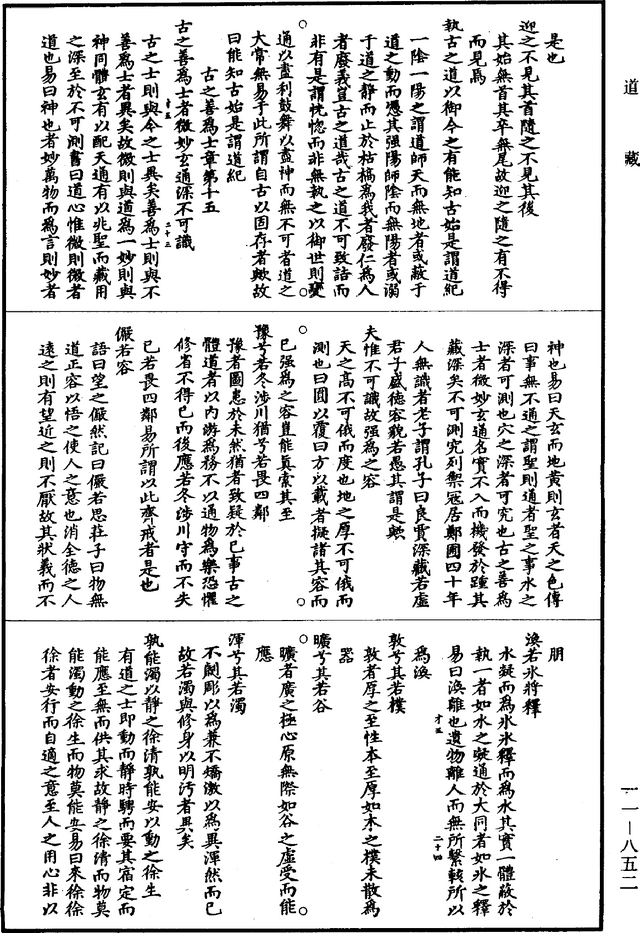 道藏
是也
迎之不見其首隨之不見其後
其始無首其卒無尾故迎之隨之有不得
而見焉
執古之道以御今之有能知古始是謂道紀
一陰一陽之謂道師天而無地者或蔽于
道之動而憑其強陽師陰而無陽者或溺
于道之靜而止於枯槁為我者廢仁為人
者廢義豈古之道哉古之道不可致詰而
非有是謂恍惚而非無執之以御世則變
通以盡利鼓舞以盡神而無不可者道之
大常無易乎此所謂自古以固存者歟故
曰能知古始是謂道紀
古之善為士章第十五
古之善為士者微妙玄通深不可識
古之士則與今之士異矣善為士則與不
善為士者異矣故微則與道為一妙則與
神同體玄有以配天通有以兆聖而藏用
之深至於不可測書曰道心惟微則微者
道也易曰神也者妙萬物而為言則妙者
神也易曰天玄而地黃則玄者天之色傳
曰事無不通之謂聖則通者聖之事水之
深者可測也穴之深者可究也古之善為
士者微妙玄通名實不入而機發於踵其
藏深矣不可測究列禦寇居鄭圃四十年
人無識者老子謂孔子曰良賈深藏若虛
君子盛德容貌若愚其謂是歟
夫惟不可識故強為之容
天之高不可俄而度也地之厚不可俄而
測也曰圓以覆曰方以載者擬諸其容而
已強為之容豈能真索其至
豫兮若冬涉川猶兮若畏四鄰
豫者圖患於未然猶者致疑於已事古之
體道者以內游為務不以通物為樂恐懼
修省不得已而後應若冬涉川守而不失
已若畏四鄰易所謂以此齊戒者是也
儼若容
語曰望之儼然記曰儼若思莊子曰物無
道正容以悟之使人之意也消全德之人
遠之則有望近之則不厭故其狀義而不
朋
渙若冰將釋
水凝而為冰冰釋而為水其實一體蔽於
執一者如水之凝通於大同者如冰之釋
易曰渙離也遺物離人而無所繫輆所以
為渙
敦兮其若樸
敦者厚之至性本至厚如木之樸未散為
器
曠兮其若谷
曠者廣之極心原無際如谷之虛受而能
應
渾兮其若濁
不劌彫以為兼不矯激以為異渾然而已
故若濁與修身以明汚者異矣
孰能濁以靜之徐清孰能安以動之徐生
有道之士即動而靜時騁而要其宿定而
能應至無而供其求故靜之徐清而物莫
能濁動之徐生而物莫能安易曰來徐徐
徐者安行而自適之意至人之用心非以
一一—八五二